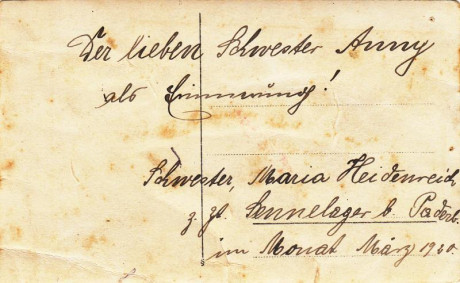 Der lieben Schwester Anny
als Erinnerung!
Schwester, Maria Heidenreich
z. Zt. Sennelager b. Paderb.
im Monat März 1940.